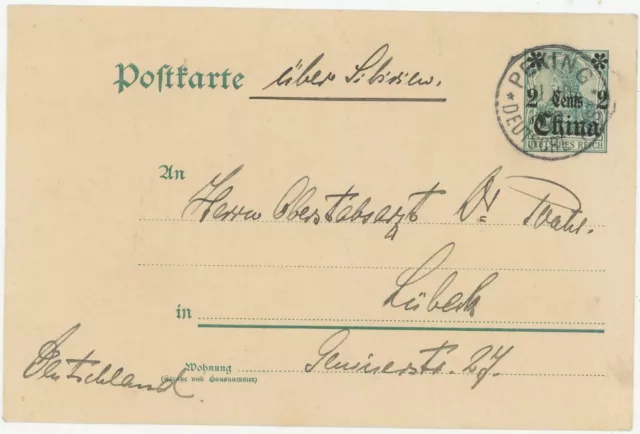 Postkarte über Sibirien.
PEKING
* DEUTSCHE
2 Cents 2
China
DEUTSCHES REICH
An
Herrn Oberstabsarzt Dr
in Lübeck
Wohnung
(Straße und Hausnummer)
27.
Deutschland.